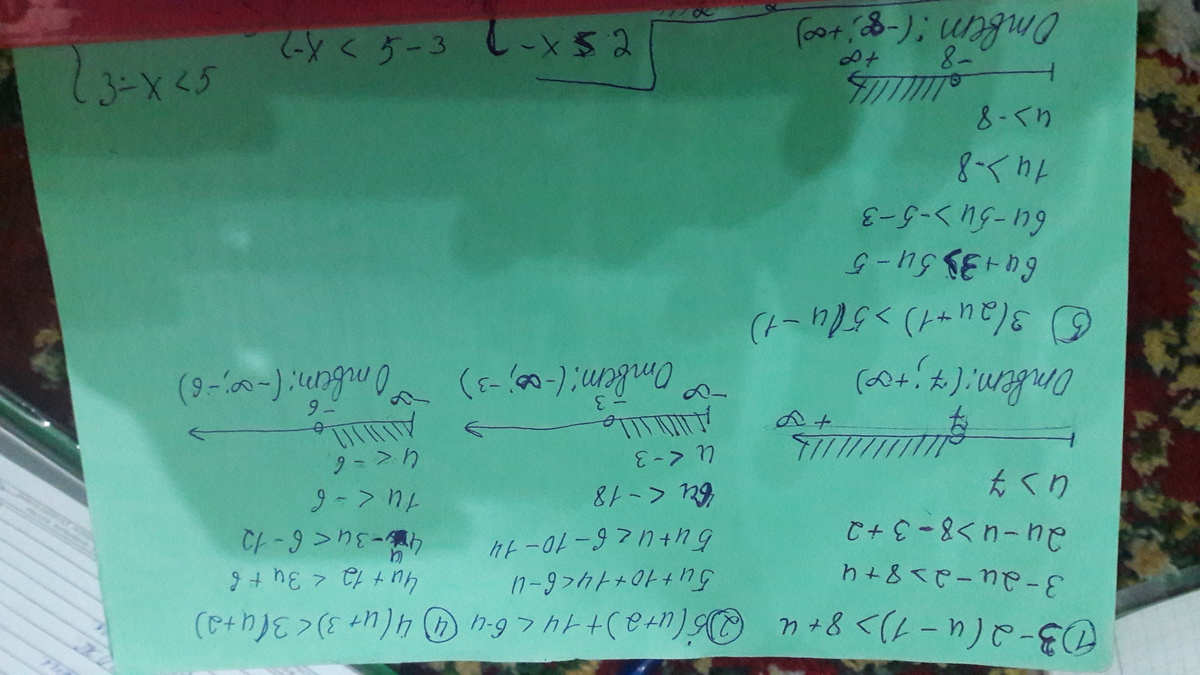 ① 3-2(u-1)>8+u
3-2u-2>8+u
2u-u>8-3+2
u>7
7 +∞
Ответ: (7; +∞)
② 5(u+2)+14<6-u
5u+10+14<6-u
5u+u<6-10-14
6u<-18
u<-3
-∞ -3
Ответ: (-∞; -3)
④ 4(u+3)<3(u+2)
4u+12<3u+6
4u-3u<6-12
1u<-6
u<-6
-∞ -6
Ответ: (-∞; -6)
3(2u+1)>5(u-1)
6u+3>5u-5
6u-5u>-5-3
1u>-8
u>-8
-8 +∞
Ответ: (-8; +∞)
3-x<5
-x<5-3